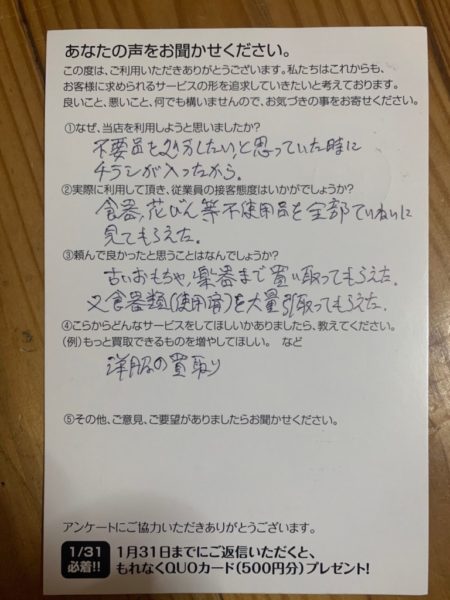 あなたの声をお聞かせください。
この度は、ご利用いただきありがとうございます。私たちはこれからも、
お客様に求められるサービスの形を追求していきたいと考えております。
良いこと、悪いこと、何でも構いませんので、お気づきの事をお寄せください。
①なぜ、当店を利用しようと思いましたか?
不要員を処分したい、と思っていた時に
チラシが入ったから。
②実際に利用して頂き、従業員の接客態度はいかがでしょうか?
食器、花びん等不使用品を全部ていねいに
見てもらえた。
③頼んで良かったと思うことはなんでしょうか?
古いおもちゃ、楽器まで買い取ってもらえた。
又食器類(使用済)を大量引取ってもらえた。
④こらからどんなサービスをしてほしいかありましたら、教えてください。
(例)もっと買取できるものを増やしてほしい。 など
洋服の買取り
⑤その他、ご意見、ご要望がありましたらお聞かせください。
アンケートにご協力いただきありがとうございます。
1/31
必着!!
1月31日までにご返信いただくと、
もれなくQUOカード(500円分)プレゼント!